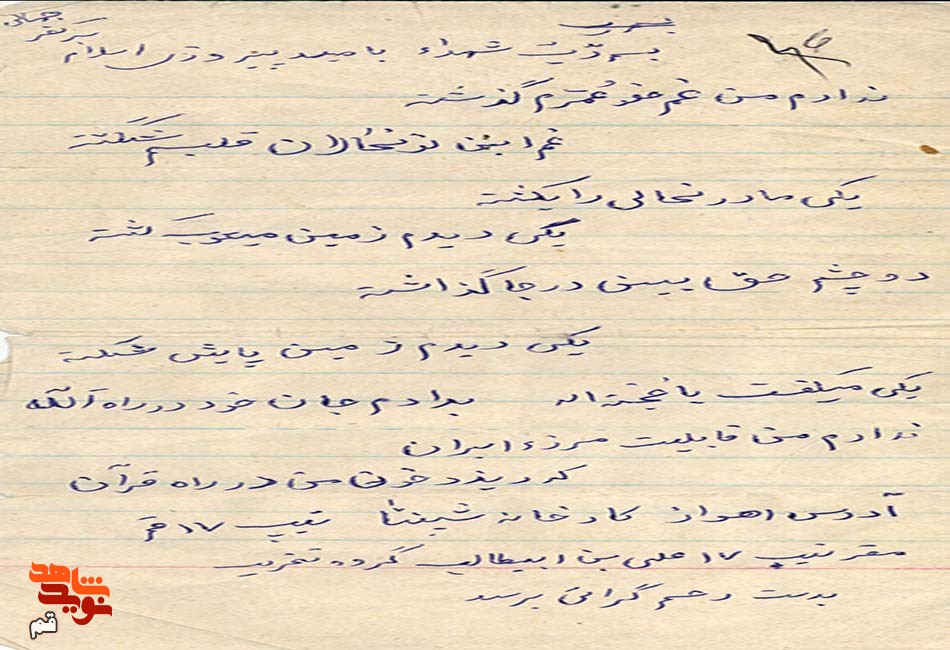 بسم رب شهداء با امید پیروزی اسلام
ندارم من غم خود عمرم گذشته
غم این نونحالان قلبم شکسته
یکی مادر نحالی را بکشته
یکی دیدم زمین میعوب گشته
دو چشم حق بینی در جا گذاشته
یکی دیدم ز مین پایش شکسته
یکی میگفت یا حجته اله بدادم جان خود در راه الله
ندارم من قابلیت مرزء ایران
که ریزد خون من در راه قرآن
آدرس اهواز کارخانه شینتا تیپ ۱۷ قم
مقر تیپ ۱۷ علی بن ابیطالب گروه تخریب
بدست رحیم گرامی برسد
نوید شاهد
قم